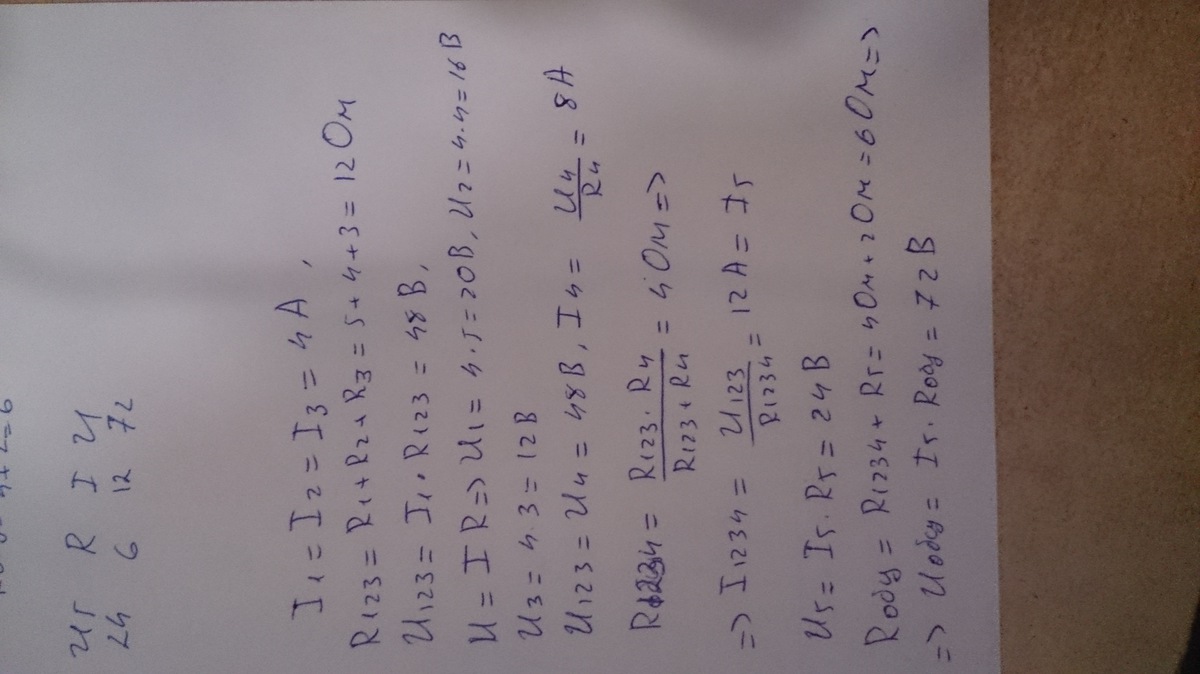 U5 R I U
24 6 12 72
I1 = I2 = I3 = 4A,
R123 = R1 + R2 + R3 = 5 + 4 + 3 = 12 Ом
U123 = I1 · R123 = 48 В,
U = I R => U1 = 4·5 = 20В, U2 = 4·4 = 16В
U3 = 4·3 = 12В
U123 = U4 = 48В, I4 = U4/R4 = 8А
R1234 = R123 · R4 / R123 + R4 = 4 Ом =>
=> I1234 = U123/R1234 = 12А = I5
U5 = I5 · R5 = 24 В
Rобщ = R1234 + R5 = 4Ом + 2Ом = 6 Ом =>
=> Uобщ = I5 · Rобщ = 72 В